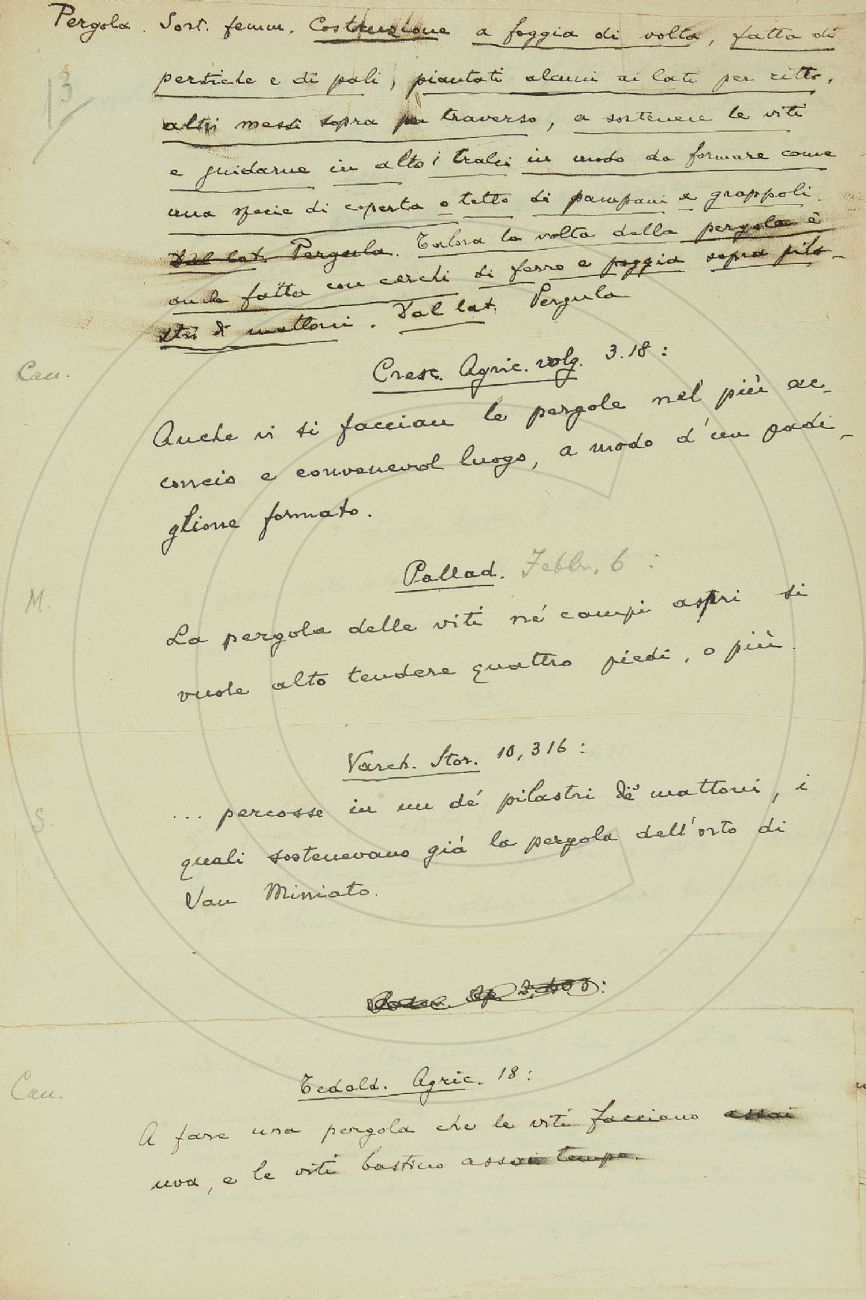 Pergola. Sost. femm. Costruzione a foggia di volta, fatta di
13
pertiche e di pali, piantati alcuni ai lati per ritto,
altri messi sopra per traverso, a sostenere le viti
e guidarne in alto i tralci in modo da formare come
una specie di coperta o tetto di pampani e grappoli.
Dal lat. Pergula. Talora la volta della pergola è
anche fatta con cerchi di ferro e poggia sopra pila-
stri di mattoni. Dal lat. Pergula
Can.
Cresc. Agric. volg. 3.18:
Anche vi si facciau le pergole nel più ac-
concio e convenevol luogo, a modo d'un padi-
glione formato.
Pallad. Febbr. 6:
M.
La pergola delle viti né campi aspri si
vuole alto tendere quattro piedi, o più.
Varch. Stor. 10,316:
... percosse in un dé pilastri di mattoni, i
S.
quali sostenevano già la pergola dell'orto di
San Miniato.
Can.
Tedald. Agric. 18:
A fare una pergola che le viti facciano assai
uva, e le viti bastino assai tempo.